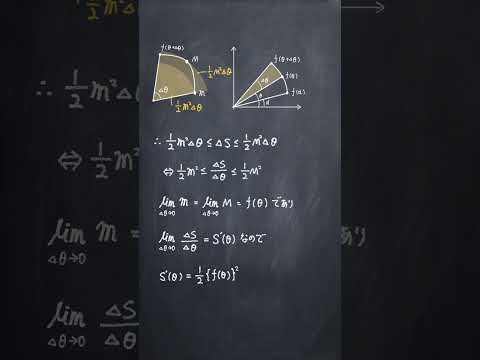 f(θ+Δθ)
M
½m²Δθ
Δθ
m
½m²Δθ
f(θ+Δθ)
f(θ)
f(α)
Δθ
θ
α
∴ ½m²Δθ ≤ ΔS ≤ ½M²Δθ
⇔ ½m² ≤ ΔS/Δθ ≤ ½M²
lim_{Δθ→0} m = lim_{Δθ→0} M = f(θ) であり
lim_{Δθ→0} ΔS/Δθ = S'(θ) なので
S'(θ) = ½{f(θ)}²